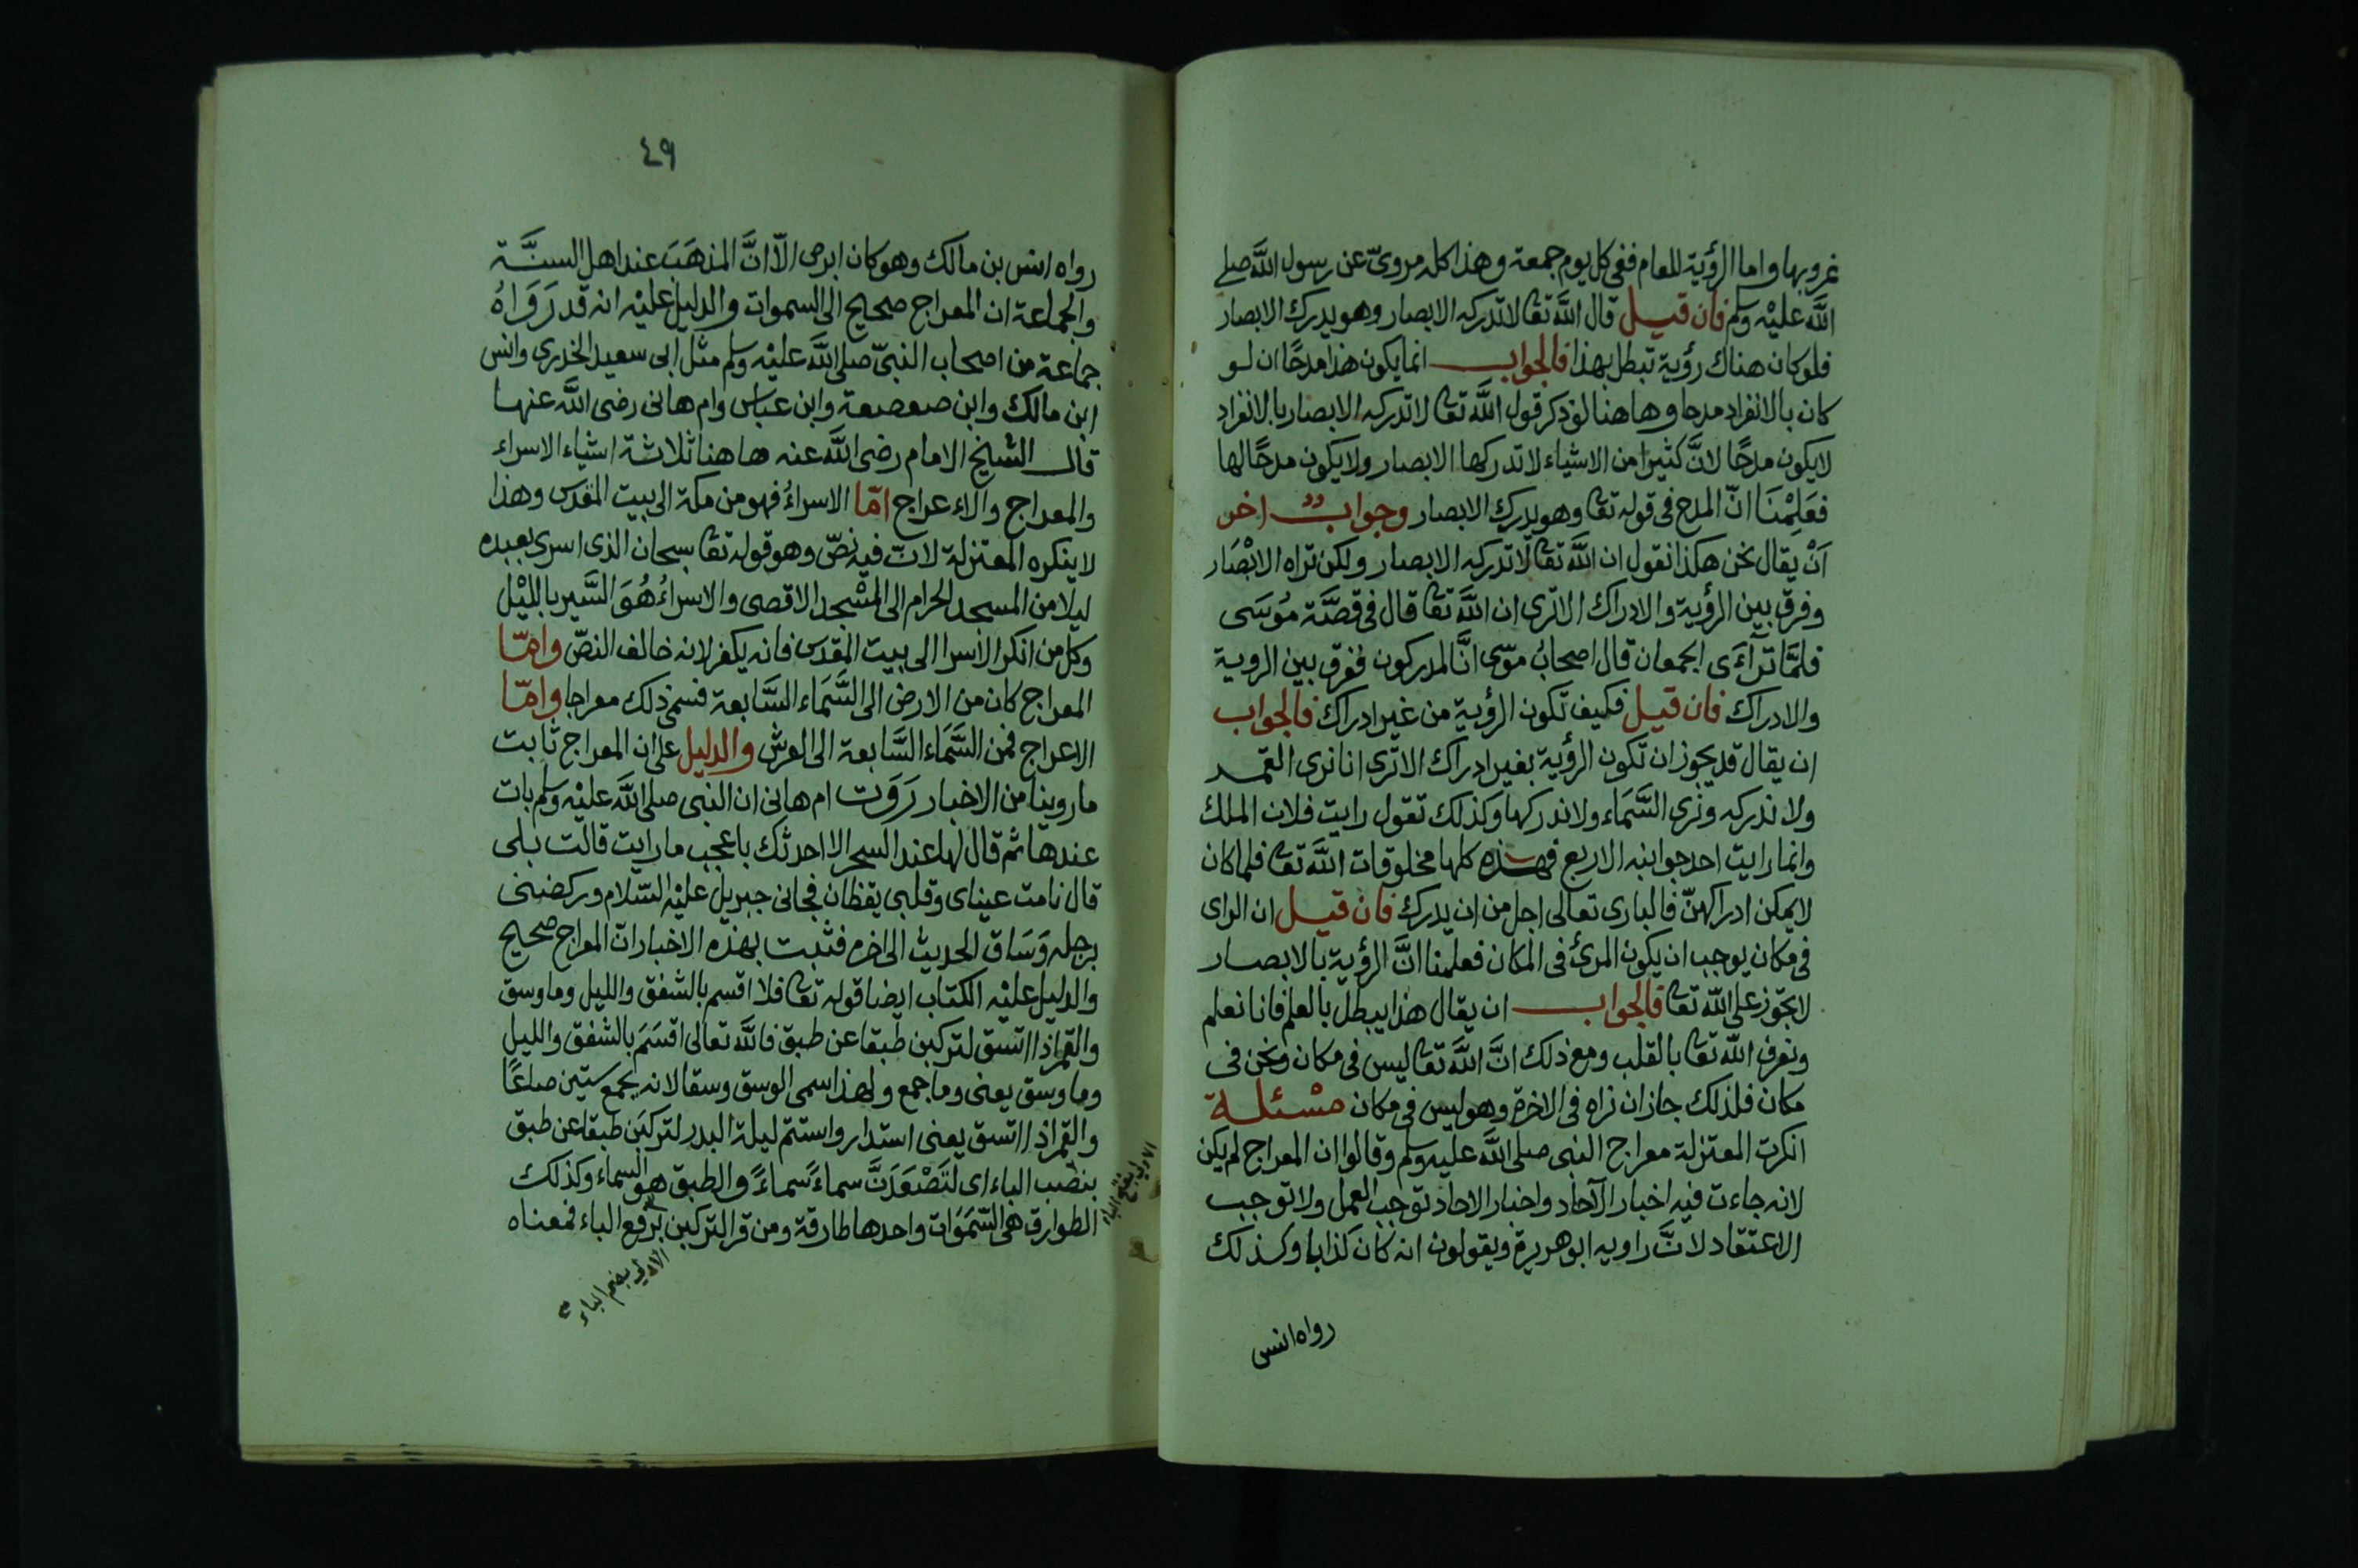 غروبها واما الرؤية للعام ففى كل يوم جمعة وهذا كله مروىّ عن رسول اللَّه صلى
اللَّه عليْه وسلم فان قيل قال اللَّه تعا لا تدركه الابصار وهو يدرك الابصار
فلو كان هناك رؤية تبطل بهذا فالجواب انما يكون هذا مدحًا ان لو
كان بالانفراد مدحا وهاهنا لو ذكر قول اللَّه تعا لا تدركه الابصار بالانفراد
لا يكون مدحًا لانَّ كثيرا من الاشياء لا تدركها الابصار ولا يكون مدحًا لها
فعَلِمْنَا انّ المدح فى قوله تعا وهو يدرك الابصار وجوابٌ اخر
اَنْ يقال نحن هكذا نقول ان اللَّه تعا لا تدركه الابصار ولكن تراه الابْصَار
وفرق بين الرؤية والادراك الا ترى ان اللَّه تعا قال فى قصَّة مُوسَى
فلمَّا تَرآءَى الجمعان قال اصحابُ موسى انَّا لمدركون ففرق بين الروية
والادراك فان قيل فكيف تكون الرؤية من غير ادراك فالجواب
ان يقال قد يجوز ان تكون الرؤية بغير ادراك الا ترى انا نرى القمر
ولا ندركه ونرى السَّمَاء ولا ندركها وكذلك تقول رايت فلان الملك
وانما رايت احد جوانبه الاربع فهذه كلها مخلوقات اللَّه تعا فلما كان
لا يمكن ادراكهنّ فالبارى تعالى اجل من ان يدرك فان قيل ان الراى
فى مكان يوجب ان يكون المرئ فى المكان فعلمنا انَّ الرؤية بالابصار
لا تجوز على اللّه تعا فالجواب ان يقال هذا يبطل بالعلم فانا نعلم
ونعرف اللّه تعا بالقلب ومع ذلك انَّ اللَّه تعا ليس فى مكان ونحن فى
مكان فلذلك جاز ان نراه فى الاخرة وهو ليس فى مكان مسْئلة
انكرت المعتزلة معراج النبى صلى اللَّه عليه وسلم وقالوا ان المعراج لم يكن
لانه جاءت فيه اخبار الآحاد واخبار الاحاد توجب العمل ولا توجب
الاعتقاد لانَّ راويه ابو هريرة ويقولون انه كان كذابا وكذلك
رواه انس
٤٩
رواه انس بن مالك وهو كان ابرص الّا انَّ المذهَبَ عند اهل السنَّة
والجماعة ان المعراج صحيح الى السموات والدليل عليْه انه قد رَوَاهُ
جماعة من اصحاب النبىّ صلى اللَّه عليْه وسلم مثل ابى سعيد الخدرى وانس
ابن مالك وابن صعصعة وابن عباس وام هانى رضى اللَّه عنها
قال الشيخ الامام رضى اللَّه عنه هاهنا ثلاثة اشياء الاسراء
والمعراج والاعراج امّا الاسراءُ فهو من مكة الى بيت المقدس وهذا
لا ينكره المعتزلة لان فيه نصّ وهو قوله تعا سبحان الذى اسرى بعبده
ليلا من المسجد الحرام الى المسْجد الاقصى والاسراءُ هُوَ السَّير بالليْل
وكل من انكر الاسرا الى بيت المقدس فانه يكفر لانه خالف النصّ وامّا
المعراج كان من الارض الى السَّمَاء السَّابعة فسمى ذلك معراجا وامّا
الاعراج فمن السَّمَاء السَّابعة الى العرش والدليل على ان المعراج ثابت
ما روينا من الاخبار رَوَت ام هانى ان النبى صلى اللَّه عليْه وسلم بات
عندها ثم قال لها عند السحر الا احدثك باعجب ما رايت قالت بلى
قال نامت عيناى وقلبى يقظان فجانى جبريل عليْه السّلام وركضنى
برجله وَسَاق الحديث الى اخره فثبت بهذه الاخبار انّ المعراج صحيح
والدليل عليْه الكتاب ايضا قوله تعا فلا اقسم بالشفق والليل وما وسق
والقمر اذا اتسق لتركبن طبقا عن طبق فاللَّه تعالى اقسَمَ بالشفق والليل
وما وسق يعنى وما جمع ولهذا سمى الوسق وسقا لانه يجمع ستين صاعًا
والقمر اذا اتسق يعنى استدار واستتم ليلة البدر لتركبَن طبقا عن طبق
بنصْب الباء اى لتَصْعَدَنَّ سماءً سماءً والطبق هو السماء وكذلك
الطوارق هى السَّمَوَات واحدها طارقة ومن قرا لتركبن برفع الباء فمعناه
الاولى بفتح الباء
الاولى بضم الباء